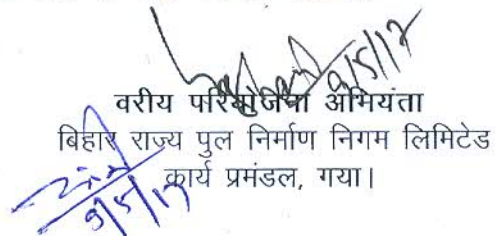 9/5/17
वरीय परियोजना अभियंता
बिहार राज्य पुल निर्माण निगम लिमिटेड
कार्य प्रमंडल, गया।
9/5/17